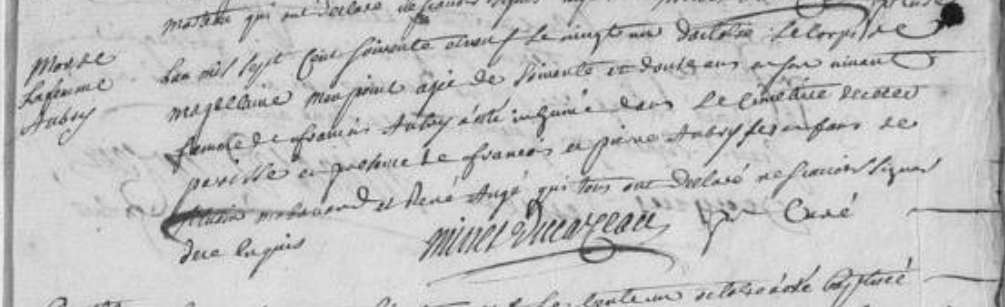 qui ont declaré ne scavoir signer
Mort de
la femme
Aubry
Lan mil sept Cent soixante et neuf Le vingt un doctobre Le Corps de
magdellaine monpoint agée de soixante et douse ans en son vivant
femme de francois Aubry a esté inhumée dans Le Cimetiere de cette
paroisse en presence de francois et pierre Aubry ses enfans de
et René Augé qui tous ont declaré ne scavoir signer
de ce enquis
Curé
baptisé